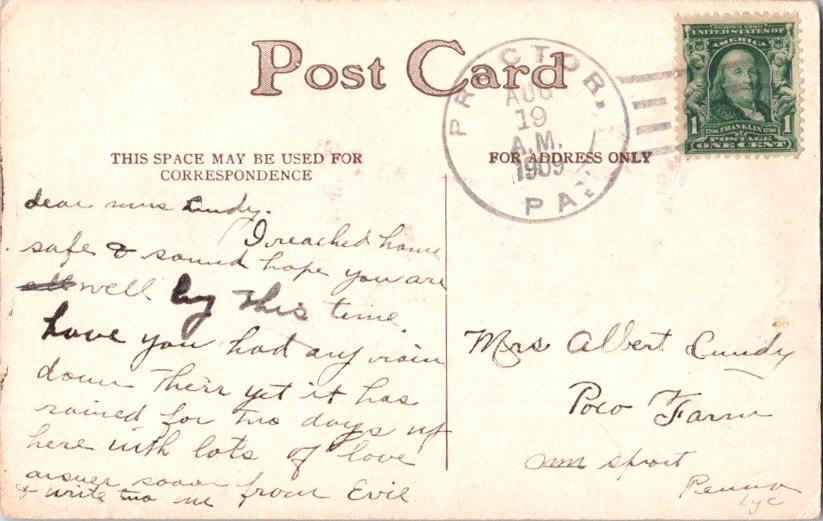 Post Card
PROCTOR,
AUG
19
A.M.
1909
PA.
SERIES 1902
UNITED STATES OF
AMERICA
1 1706 FRANKLIN 1790 1
POSTAGE
ONE CENT
THIS SPACE MAY BE USED FOR
CORRESPONDENCE
FOR ADDRESS ONLY
dear mrs Cundy.
I reached home
safe & sound hope you are
well by this time.
have you had any rain
down Their yet it has
rained for two days up
here with lots of love
answer soon from Evie
& write two me
Mrs Albert Cundy
Poco Farm
sprout
Penna
Lyc